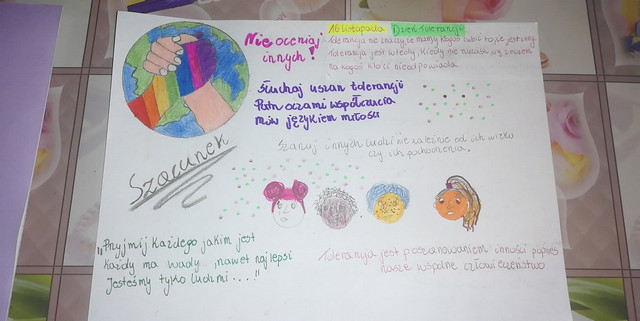 Nie oceniaj
innych!
16 listopada Dzień Tolerancji
Tolerancja nie znaczy, że mamy kogoś lubić
Tolerancja jest wtedy, kiedy nie
na kogoś kto Ci nie odpowiada.
Słuchaj uszami tolerancji
Patrz oczami współczucia
Mów językiem miłości
Szanuj innych ludzi nie zależnie od ich wieku
czy ich pochodzenia.
Szacunek
„Przyjmij każdego jakim jest
każdy ma wady, nawet najlepsi
Jesteśmy tylko ludźmi...!"
Tolerancja jest poszanowaniem inności poprzez
nasze wspólne człowieczeństwo